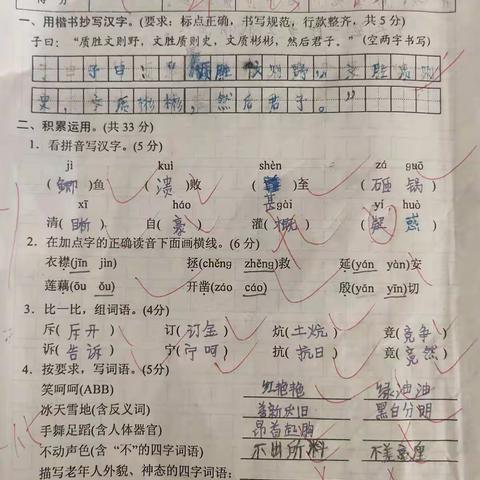 一、用楷书抄写汉字。(要求：标点正确，书写规范，行款整齐，共 5 分)
子曰：“质胜文则野，文胜质则史，文质彬彬，然后君子。”(空两字书写)
子曰：“质胜文则野，文胜质则
史，文质彬彬，然后君子。”
二、积累运用。(共 33 分)
1. 看拼音写汉字。(5 分)
jì kuì shèn zá guō
(鲫)鱼 (溃)败 (甚)至 (砸 锅)
xī háo gài yí huò
清(晰) 自(豪) 灌(概) (疑 惑)
2. 在加点字的正确读音下面画横线。(6 分)
衣襟(jīn jìn) 拯(chěng zhěng)救 延(yán yàn)安
莲藕(ǒu ǒu) 开凿(záo cáo) 殷(yān yīn)切
3. 比一比，组词语。(4分)
斥(斥开) 订(订金) 炕(土炕) 竞(竞争)
诉(告诉) 宁(宁呵) 抗(抗日) 竟(竟然)
4. 按要求，写词语。(5分)
笑呵呵(ABB) 红艳艳 绿油油
冰天雪地(含反义词) 喜新厌旧 黑白分明
手舞足蹈(含人体器官) 昂首挺胸
不动声色(含“不”的四字词语) 不出所料
描写老年人外貌、神态的四字词语：